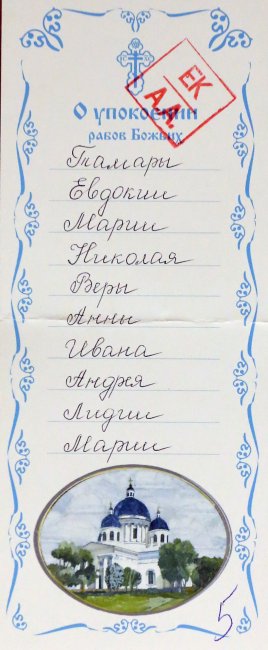 ЕК
А.Д.
О упокоении
рабов Божьих
Тамары
Евдокии
Марии
Николая
Веры
Анны
Ивана
Андрея
Лидии
Марии
5